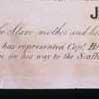 J
the Slave-mother and her
has represented Capt. Br
on his way to the Scaffo